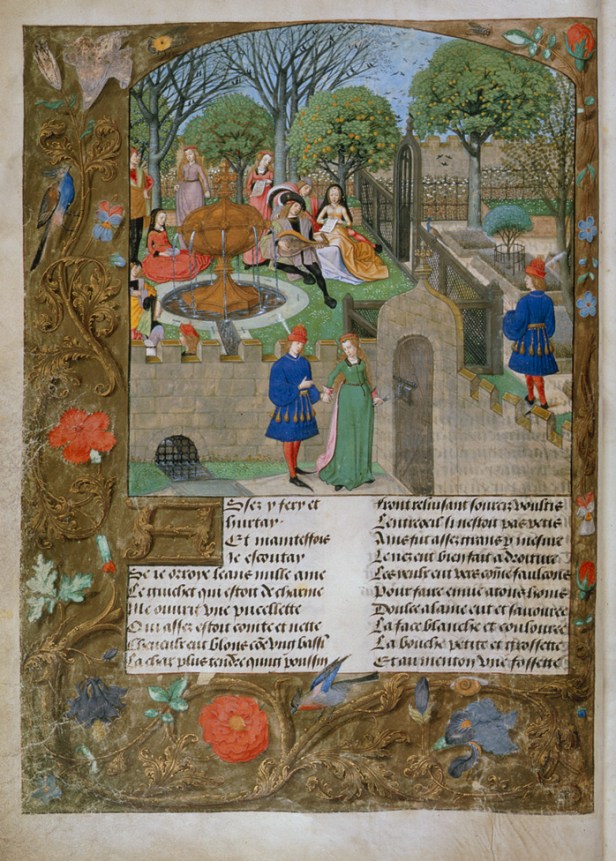 Assez y fery et
hurtay.
Et maintesfois
Je escoutay
Se ie orroye leans nulle ame
Le guichet qui estoit de charme
Me ouurit vne pucellette
Qui assez estoit cointe et nette
Cheueulx eut blons cõe vng bassi
La char plus tendre qung poussin
Front reluisant sourcis voultis
Lentreoeil si nestoit pas petis
Ains fut assez grans p mesure
Le nez eut bien fait a droiture
Les yeulx eut vers cõme faulcons
Pour faire enuie a tous homs
Doulce alaine eut et sauouree
La face blanche et coulouree
La bouche petite et grossette
Et au menton vne fossette